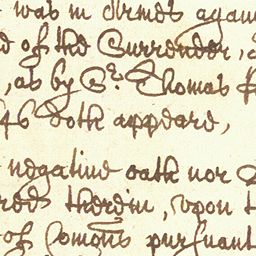 was in Armes again
of the Surrender,
, as by Sr. Thomas
46 doth appeare,
negative oath nor
red therein, upon
of Comons pursuant